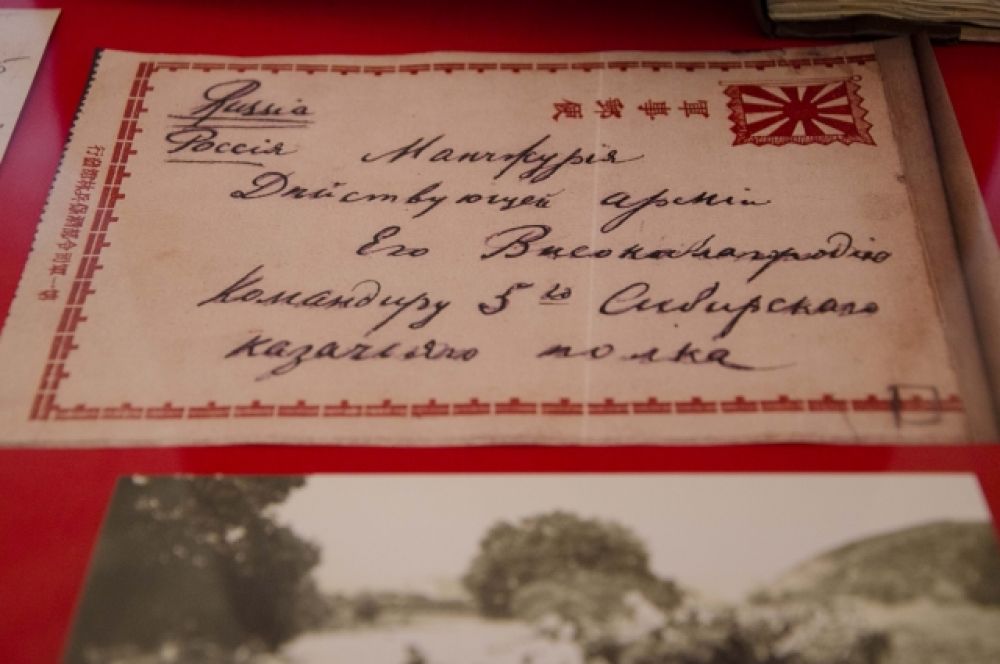 Russia
Россія
軍事郵便
Манчжурія
Дѣйствующей арміи
Его Высокоблагородію
Командиру 5го Сибирскаго
казачьяго полка